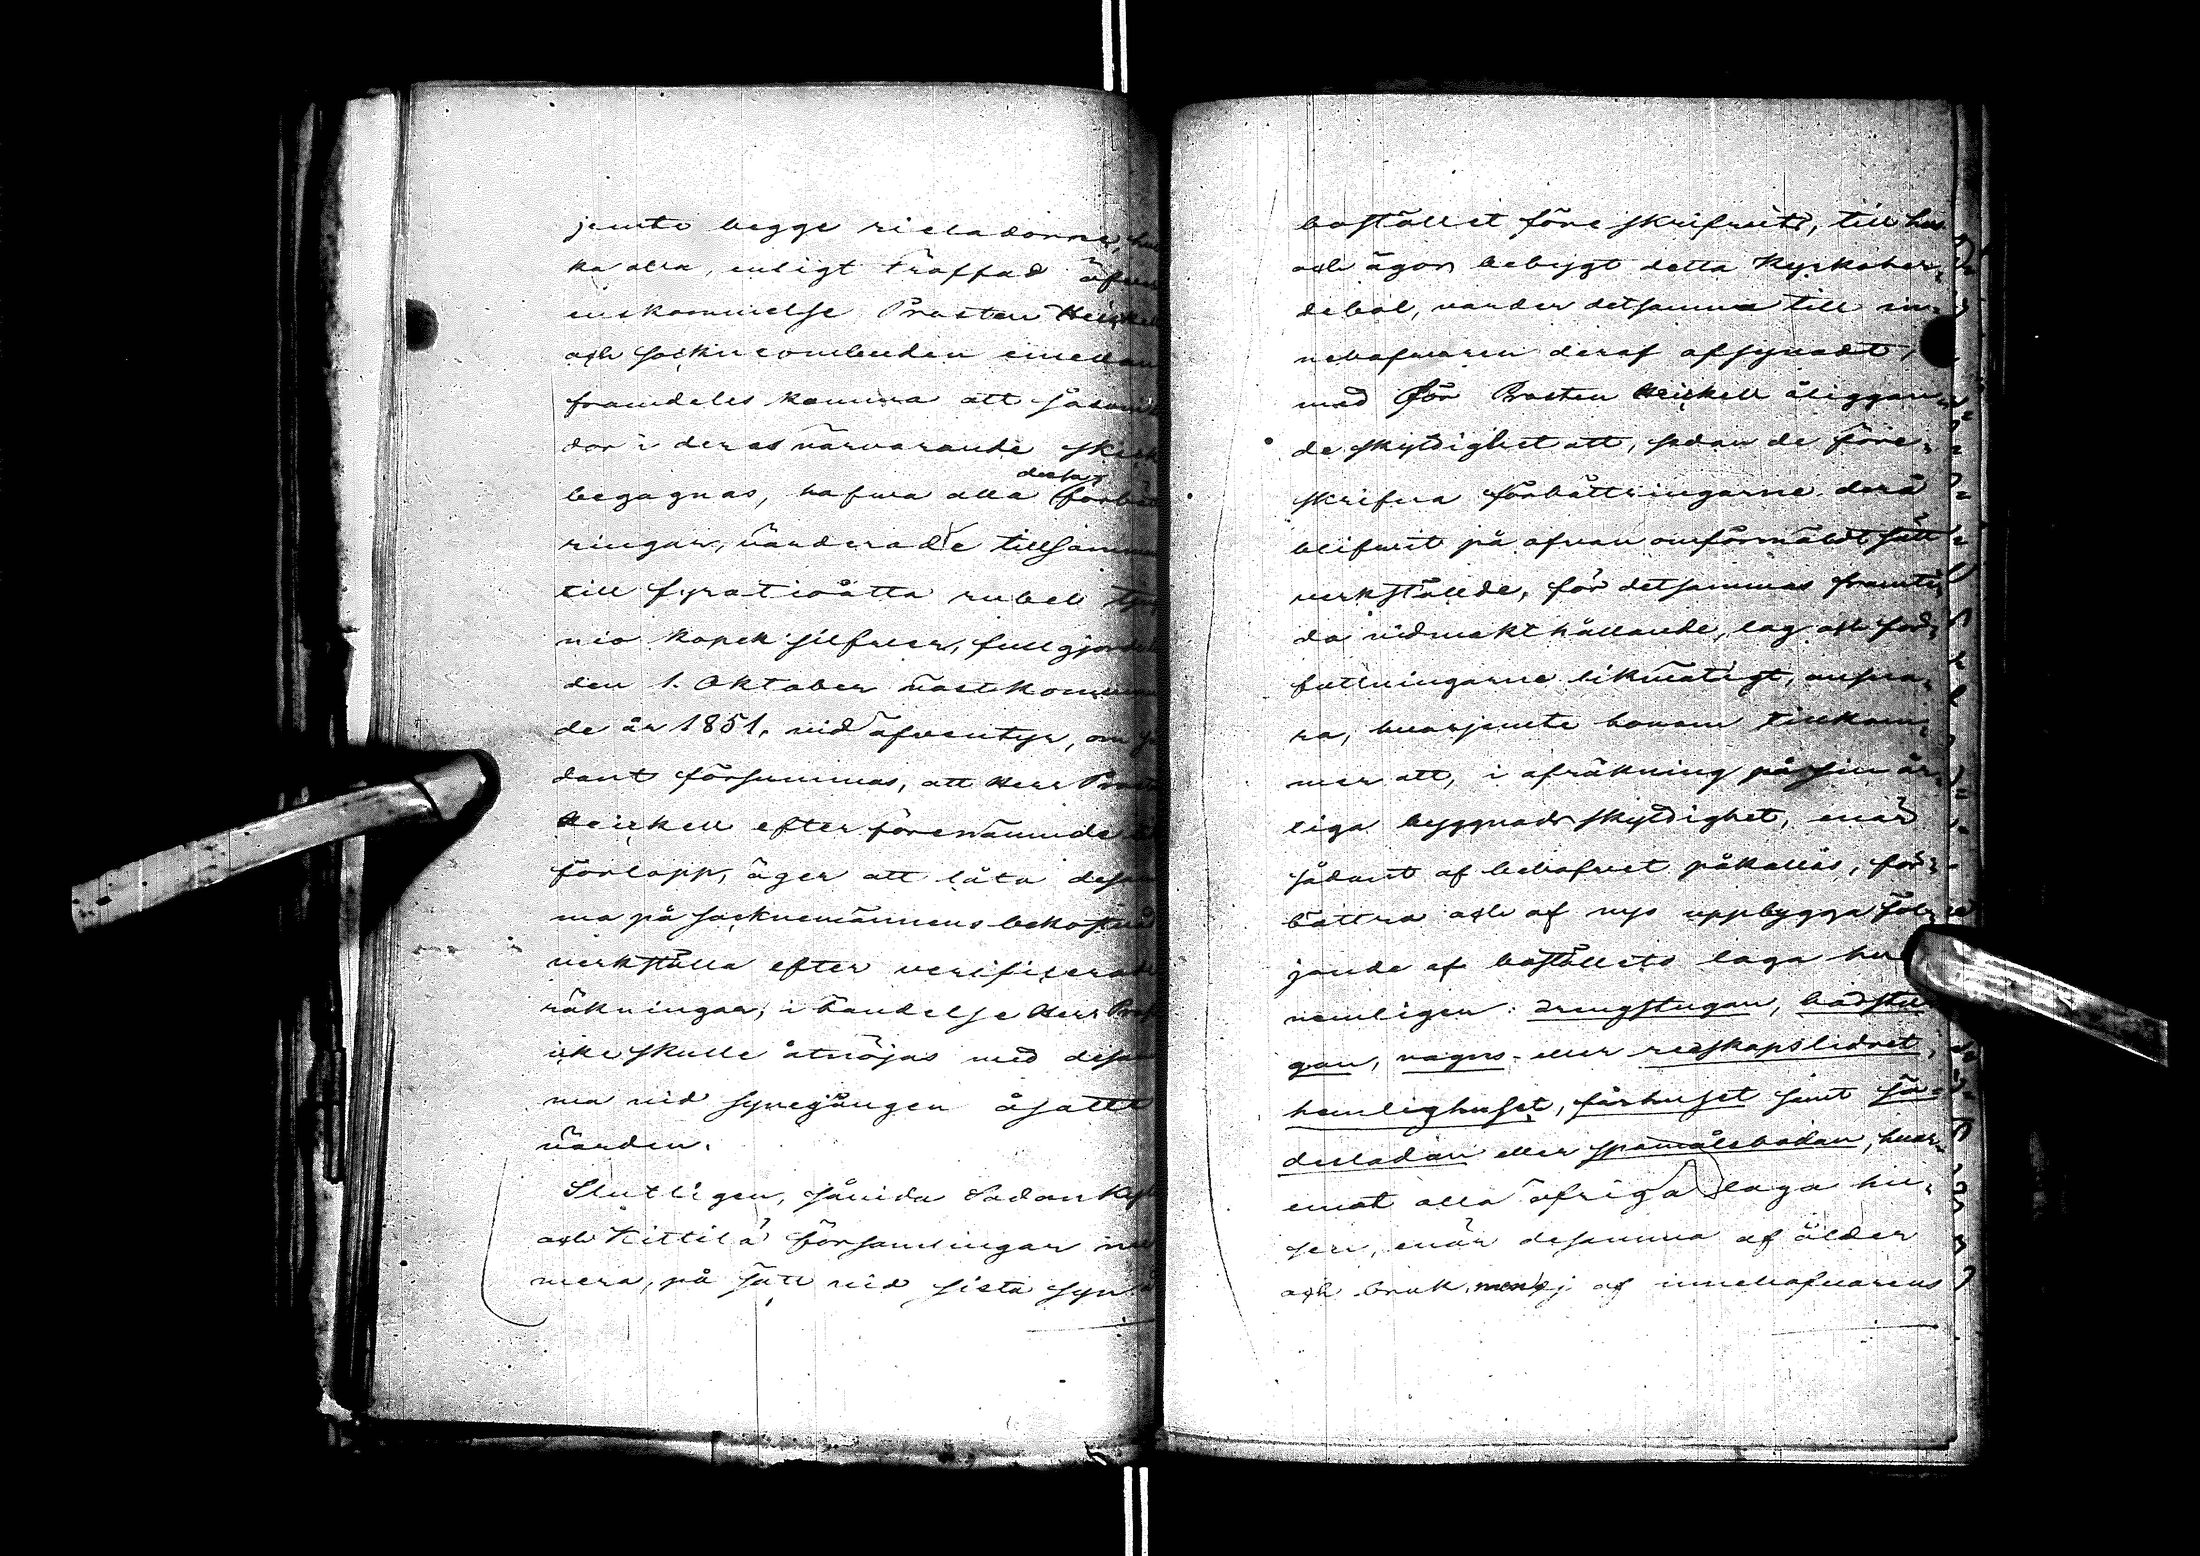 jemte begge rieladorne,
ka alla, enligt träffad öfver
enskommelse Prosten Heickell
och Sockneombuden emellan
framdeles komma att såsom
dor i deras närvarande skick
begagnas, hafva alla dessa förbätt
ringar, värderade tillsamman
till fyratioåtta rubel
nio kopek silfver, fullgjordt
den 1. Oktober nästkomman
de år 1851, vid äfventyr, om
dant försummas, att Herr Prosten
Heickell efter förenämnde
förlopp, äger att låta desam
ma på socknemännens bekostnad
verkställa efter verificerade
räkningar, i händelse Herr Prosten
icke skulle åtnöjas med desam
ma vid synegången åsatte
värden.
Slutligen, såvida Sodankylä
och Kittilä församlingar nu
mera, på sätt vid sista syn
bostället föreskrifvits, till hus
och ägor bebygt detta Kyrkoher-
debol, varder detsamma till in-
nehafvaren deraf afsynadt,
med för Prosten Heickell åliggan-
de skyldighet att, sedan de före-
skrifna förbättringarne derå
blifvit på ofvan omförmäldt sätt
verkställde, för detsammas framti-
da vidmakthållande, lag och för-
fattningarne likmätigt, ansva-
ra, hvarjemte honom tillkom-
mer att, i afräkning på sin år-
liga byggnadsskyldighet, enär
sådant af behofvet påkallas, för-
bättra och af nyo uppbygga föl-
jande af boställets laga hus
nemligen: drengstugan, badstu-
gan, vagns- eller redskapslidret,
hemlighuset, fårhuset samt sä-
desladan eller spannmålsbodan, hvar-
emot alla öfriga laga hu-
sen, enär desamma af ålder
och bruk, men ej af innehafvarens